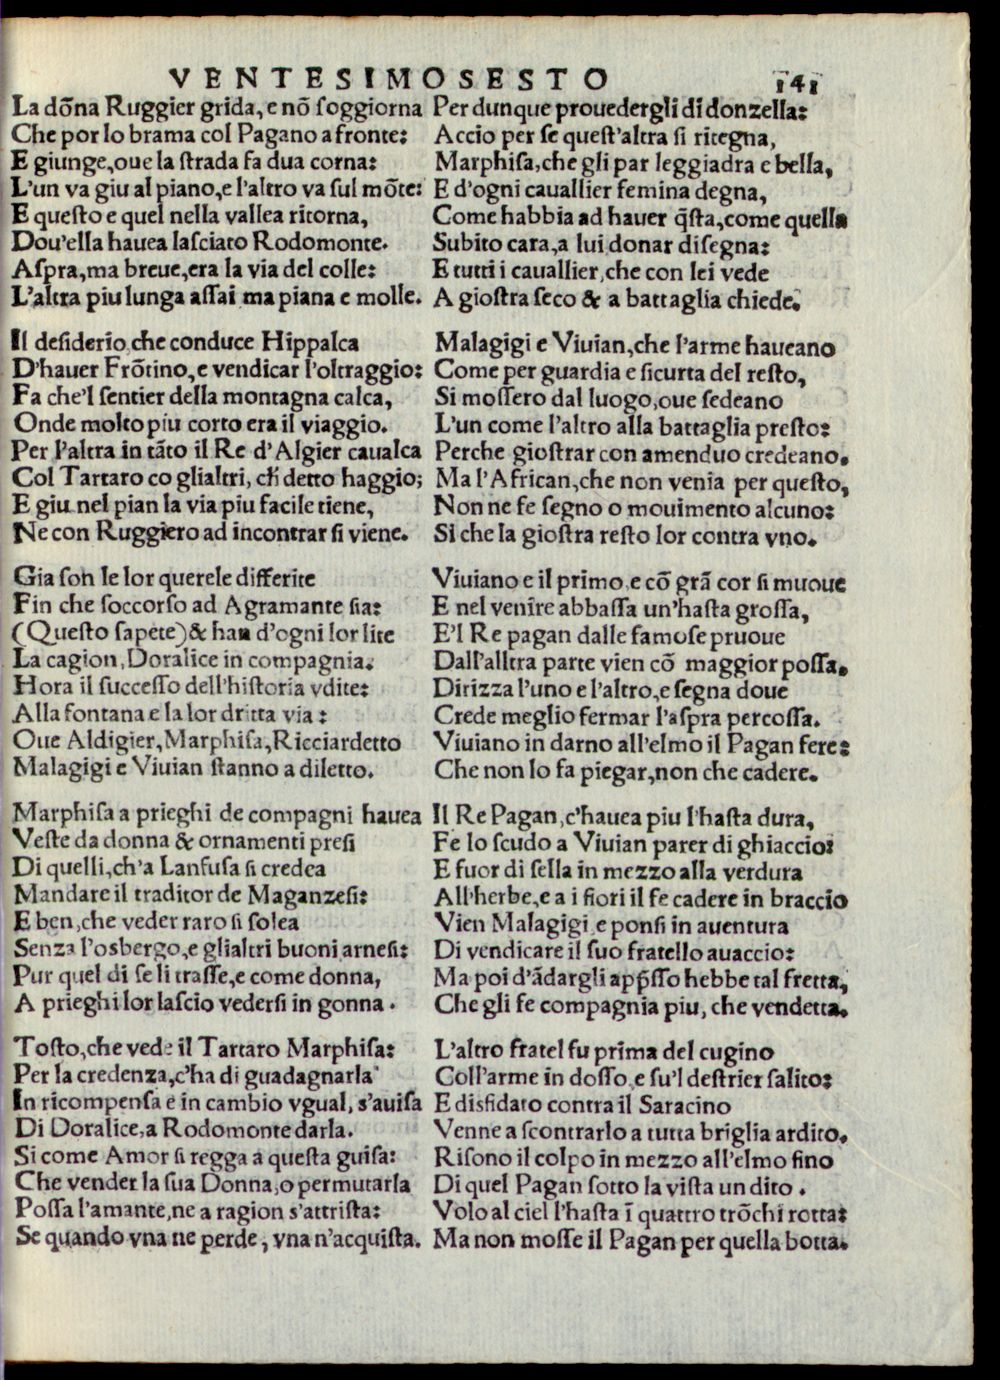 VENTESIMOSESTO 141
La dõna Ruggier grida, e nõ soggiorna
Che por lo brama col Pagano a fronte:
E giunge, oue la strada fa dua corna:
L'un va giu al piano, e l'altro va sul mõte:
E questo e quel nella vallea ritorna,
Dou'ella hauea lasciato Rodomonte.
Aspra, ma breue, era la via del colle:
L'altra piu lunga assai ma piana e molle.
Il desiderio, che conduce Hippalca
D'hauer Frõtino, e vendicar l'oltraggio:
Fa che'l sentier della montagna calca,
Onde molto piu corto era il viaggio.
Per l'altra in tãto il Re d'Algier caualca
Col Tartaro co glialtri, ch detto haggio;
E giu nel pian la via piu facile tiene,
Ne con Ruggiero ad incontrar si viene.
Gia son le lor querele differite
Fin che soccorso ad Agramante sia:
(Questo sapete) & han d'ogni lor lite
La cagion, Doralice in compagnia.
Hora il successo dell'historia vdite:
Alla fontana e la lor dritta via:
Oue Aldigier, Marphisa, Ricciardetto
Malagigi e Viuian stanno a diletto.
Marphisa a prieghi de compagni hauea
Veste da donna & ornamenti presi
Di quelli, ch'a Lanfusa si credea
Mandare il traditor de Maganzesi:
E ben, che veder raro si solea
Senza l'osbergo, e glialtri buoni arnesi:
Pur quel di se li trasse, e come donna,
A prieghi lor lascio vedersi in gonna.
Tosto, che vede il Tartaro Marphisa:
Per la credenza, c'ha di guadagnarla
In ricompensa e in cambio vgual, s'auisa
Di Doralice, a Rodomonte darla.
Si come Amor si regga a questa guisa:
Che vender la sua Donna, o permutarla
Possa l'amante, ne a ragion s'attrista:
Se quando vna ne perde, vna n'acquista.
Per dunque prouedergli di donzella:
Accio per se quest'altra si ritegna,
Marphisa, che gli par leggiadra e bella,
E d'ogni cauallier femina degna,
Come habbia ad hauer q̃sta, come quella
Subito cara, a lui donar disegna:
E tutti i cauallier, che con lei vede
A giostra seco & a battaglia chiede.
Malagigi e Viuian, che l'arme haueano
Come per guardia e sicurta del resto,
Si mossero dal luogo, oue sedeano
L'un come l'altro alla battaglia presto:
Perche giostrar con amenduo credeano.
Ma l'African, che non venia per questo,
Non ne fe segno o mouimento alcuno:
Si che la giostra resto lor contra vno.
Viuiano e il primo, e cõ grã cor si muoue
E nel venire abbassa un'hasta grossa,
E'l Re pagan dalle famose pruoue
Dall'alltra parte vien cõ maggior possa.
Dirizza l'uno e l'altro, e segna doue
Crede meglio fermar l'aspra percossa.
Viuiano in darno all'elmo il Pagan fere:
Che non lo fa piegar, non che cadere.
Il Re Pagan, c'hauea piu l'hasta dura,
Fe lo scudo a Viuian parer di ghiaccio:
E fuor di sella in mezzo alla verdura
All'herbe, e a i fiori il fe cadere in braccio
Vien Malagigi e ponsi in auentura
Di vendicare il suo fratello auaccio:
Ma poi d'ãdargli app̃sso hebbe tal fretta,
Che gli fe compagnia piu, che vendetta.
L'altro fratel fu prima del cugino
Coll'arme in dosso, e su'l destrier salito:
E disfidato contra il Saracino
Venne a scontrarlo a tutta briglia ardito.
Risono il colpo in mezzo all'elmo fino
Di quel Pagan sotto la vista un dito.
Volo al ciel l'hasta ĩ quattro trõchi rotta:
Ma non mosse il Pagan per quella botta.